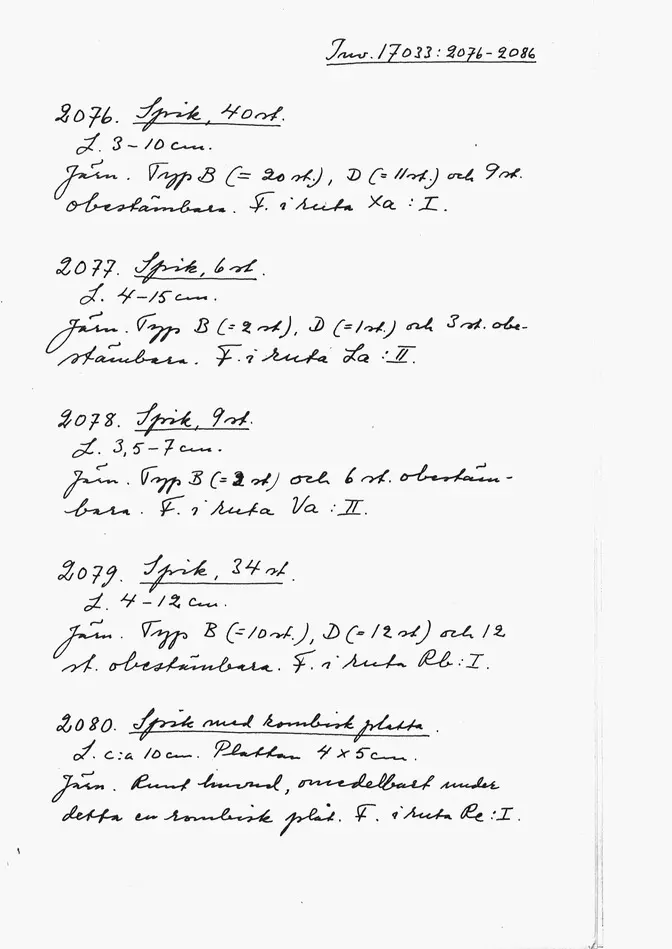 Inv. 17033:2076-2086
2076. Spik, 40 st.
L. 3-10 cm.
Järn. Typ B (= 20 st.), D (= 11 st.) och 9 st.
obestämbara. F. i ruta Xa : I.
2077. Spik, 6 st.
L. 4-15 cm.
Järn. Typ B (= 2 st), D (= 1 st.) och 3 st. obe-
stämbara. F. i ruta La : II.
2078. Spik, 9 st.
L. 3,5-7 cm.
Järn. Typ B (= 2 st) och 6 st. obestäm-
bara. F. i ruta Va : II.
2079. Spik, 34 st.
L. 4-12 cm.
Järn. Typ B (= 10 st.), D (= 12 st) och 12
st. obestämbara. F. i ruta Rb : I.
2080. Spik med rombisk platta.
L. c:a 10 cm. Plattan 4 x 5 cm.
Järn. Runt huvud, omedelbart under
detta en rombisk plåt. F. i ruta Re : I.